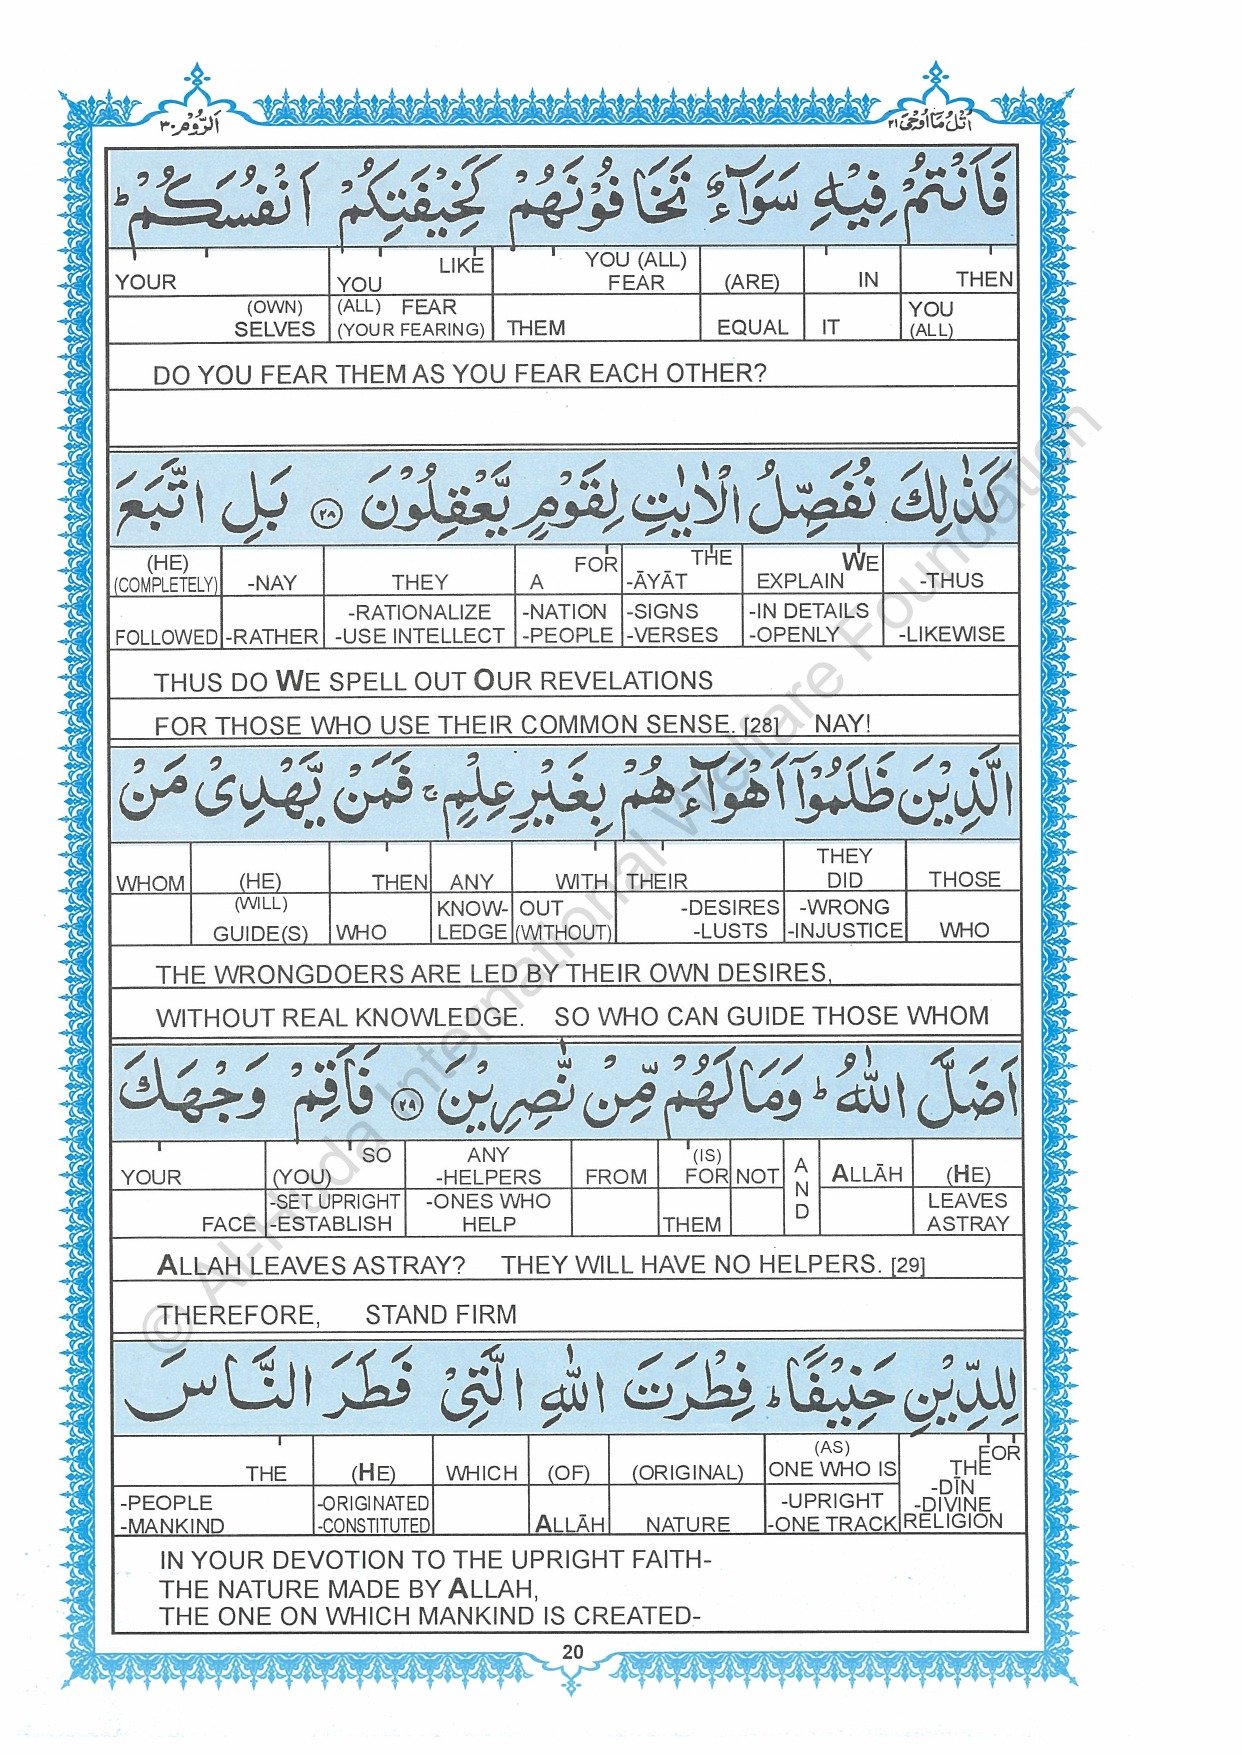 اَلرُّوۡم ۳۰
اُتۡلُ مَاۤ اُوۡحِیَ ۲۱
فَاَنْتُمْ فِيْهِ سَوَآءٌ تَخَافُوْنَهُمْ كَخِيْفَتِكُمْ اَنْفُسَكُمْ ؕ
YOUR YOU LIKE YOU (ALL) FEAR (ARE) IN THEN
(OWN) SELVES (ALL) FEAR (YOUR FEARING) THEM EQUAL IT YOU (ALL)
DO YOU FEAR THEM AS YOU FEAR EACH OTHER?
كَذٰلِكَ نُفَصِّلُ الْاٰيٰتِ لِقَوْمٍ يَّعْقِلُوْنَ ۲۸ بَلِ اتَّبَعَ
(HE) (COMPLETELY) -NAY THEY FOR A THE -ĀYĀT WE EXPLAIN -THUS
FOLLOWED -RATHER -RATIONALIZE -USE INTELLECT -NATION -PEOPLE -SIGNS -VERSES -IN DETAILS -OPENLY -LIKEWISE
THUS DO WE SPELL OUT OUR REVELATIONS
FOR THOSE WHO USE THEIR COMMON SENSE. [28] NAY!
الَّذِيْنَ ظَلَمُوْۤا اَهْوَآءَهُمْ بِغَيْرِ عِلْمٍ ۚ فَمَنْ يَّهْدِيْ مَنْ
WHOM (HE) THEN ANY WITH THEIR THEY DID THOSE
(WILL) GUIDE(S) WHO KNOW- LEDGE OUT (WITHOUT) -DESIRES -LUSTS -WRONG -INJUSTICE WHO
THE WRONGDOERS ARE LED BY THEIR OWN DESIRES,
WITHOUT REAL KNOWLEDGE. SO WHO CAN GUIDE THOSE WHOM
اَضَلَّ اللّٰهُ ؕ وَمَا لَهُمْ مِّنْ نّٰصِرِيْنَ ۲۹ فَاَقِمْ وَجْهَكَ
YOUR SO (YOU) ANY -HELPERS FROM (IS) FOR NOT AND ALLĀH (HE)
FACE -SET UPRIGHT -ESTABLISH -ONES WHO HELP THEM LEAVES ASTRAY
ALLAH LEAVES ASTRAY? THEY WILL HAVE NO HELPERS. [29]
THEREFORE, STAND FIRM
لِلدِّيْنِ حَنِيْفًا ؕ فِطْرَتَ اللّٰهِ الَّتِيْ فَطَرَ النَّاسَ
THE (HE) WHICH (OF) (ORIGINAL) (AS) ONE WHO IS FOR THE
-PEOPLE -MANKIND -ORIGINATED -CONSTITUTED ALLĀH NATURE -UPRIGHT -ONE TRACK -DĪN -DIVINE RELIGION
IN YOUR DEVOTION TO THE UPRIGHT FAITH-
THE NATURE MADE BY ALLAH,
THE ONE ON WHICH MANKIND IS CREATED-
20
© Al-Huda International Welfare Foundation